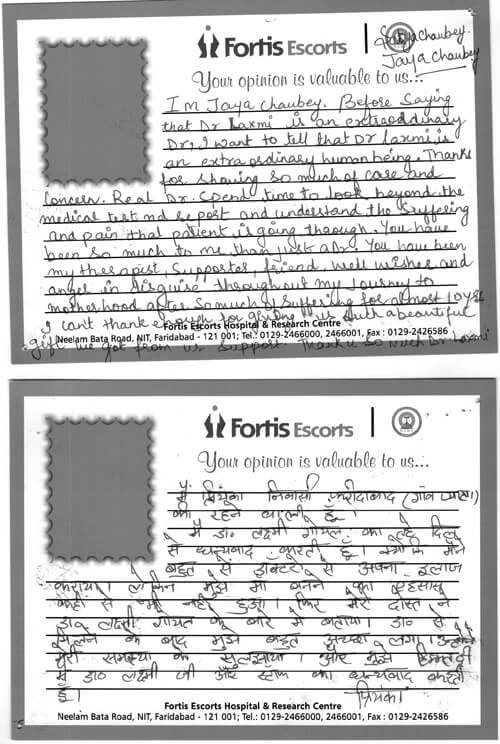 Fortis Escorts
Satya Chaubey.
Jaya Chaubey
Your opinion is valuable to us...
I'm Jaya Chaubey. Before Saying
that Dr Laxmi is an extraordinary
Dr, I want to tell that Dr Laxmi is
an extraordinary human being. Thanks
for showing so much of care and
Concern. Real Dr. Spend time to look beyond the
medical test and report and understand the Suffering
and pain that patient is going through. You have
been so much to me than just a Dr. You have been
my therapist, Supporter, friend, well wisher and
angel in disguise throughout my Journey to
motherhood after so much of Suffering for almost 10 yrs.
I can't thank enough for giving us such a beautiful
gift we got from us support. Thank u so much Dr Laxmi
Fortis Escorts Hospital & Research Centre
Neelam Bata Road, NIT, Faridabad - 121 001; Tel.: 0129-2466000, 2466001, Fax : 0129-2426586
Fortis Escorts
Your opinion is valuable to us...
मैं प्रियंका निवासी फरीदाबाद (गांव
की रहने वाली हूँ।
मैं डा० लक्ष्मी गोयल का तहे दिल
से धन्यवाद करती हूँ। क्योंकि मैंने
बहुत से डॉक्टर से अपना इलाज
कराया। लेकिन मुझे माँ बनने का एहसास
कहीं से भी नहीं हुआ। फिर मेरे दोस्त ने
डा० लक्ष्मी गोयल के बारे में बताया। डा० से
मिलने के बाद मुझे बहुत अच्छा लगा। उन्होंने
मेरी समस्या को सुलझाया। और मुझे हिम्मत दी
मैं डा० लक्ष्मी जी और स्टाफ का धन्यवाद करती
हूँ। प्रियंका
Fortis Escorts Hospital & Research Centre
Neelam Bata Road, NIT, Faridabad - 121 001; Tel.: 0129-2466000, 2466001, Fax : 0129-2426586